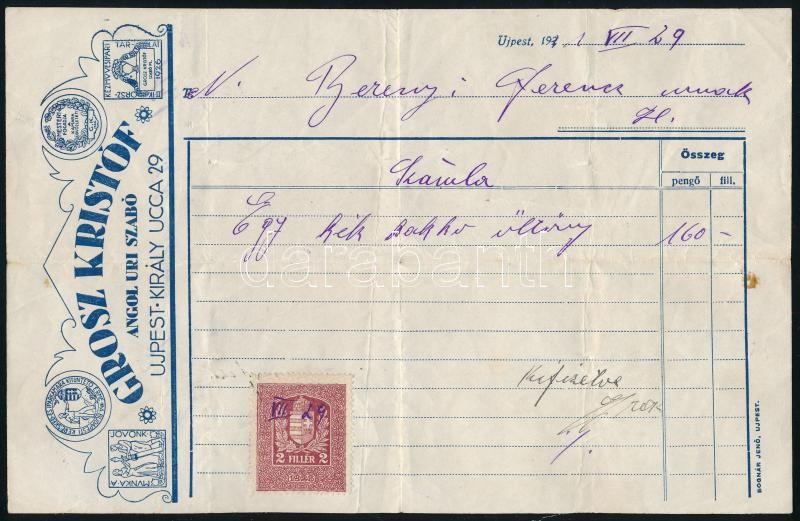 Ujpest, 193 1 VII 29
N. Berenyi Ferenc urnak
H.
Összeg
pengő fill.
Számla
Egy kék sakko öltöny 160 –
GROSZ KRISTÓF
ANGOL URI SZABÓ
UJPEST · KIRÁLY UCCA 29
KÉZMŰVESIPARI
TÁRLAT
1926
III. IK ORSZ.
GROSZ KRISTÓF
JÖVŐNK
A MUNKA
VII 29
2 FILLÉR 2
Kifizetve
darabanth
BOGNÁR JENŐ, UJPEST.